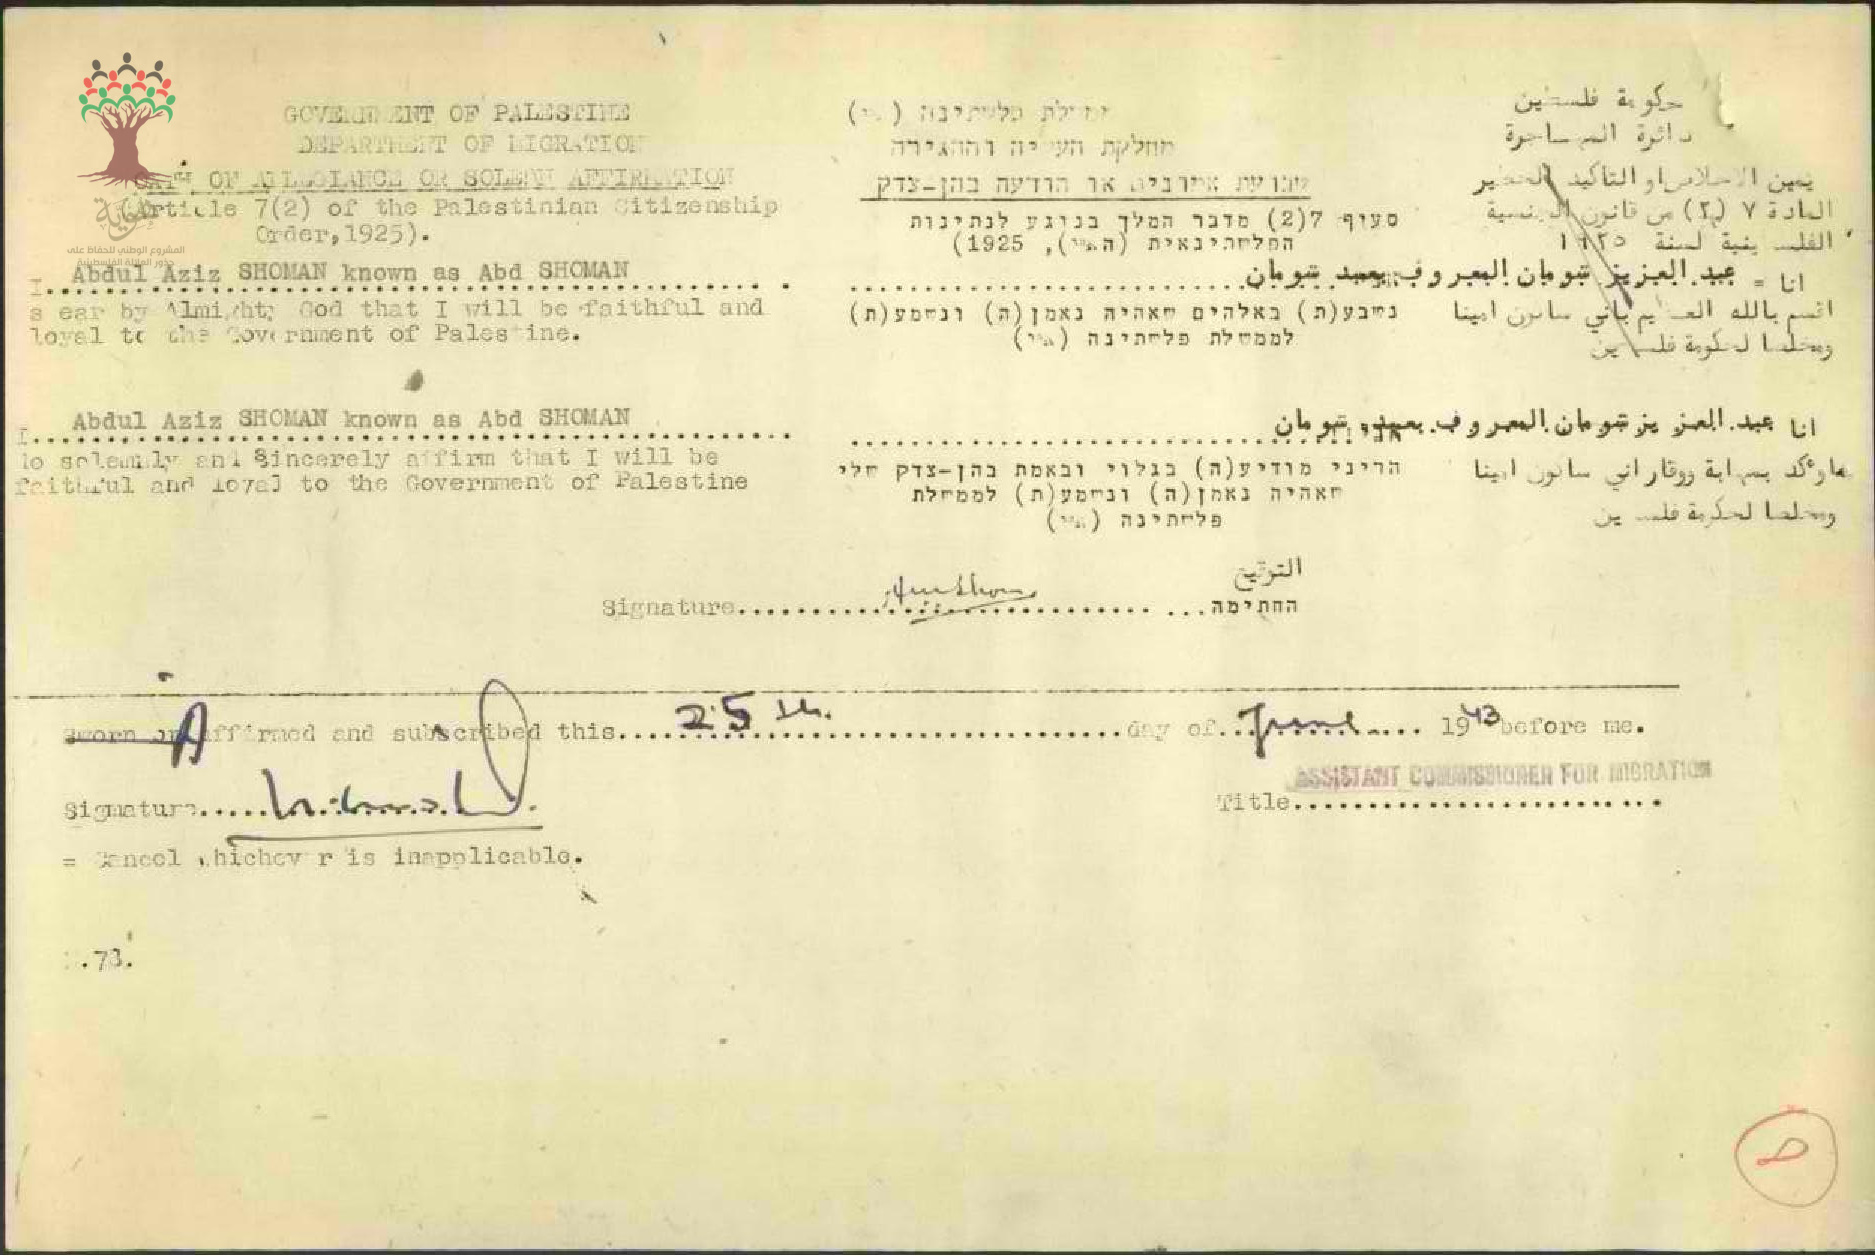 GOVERNMENT OF PALESTINE
DEPARTMENT OF MIGRATION
OATH OF ALLEGIANCE OR SOLEMN AFFIRMATION
(Article 7(2) of the Palestinian Citizenship
Order,1925).
I. Abdul Aziz SHOMAN known as Abd SHOMAN
swear by Almighty God that I will be faithful and
loyal to the Government of Palestine.
I. Abdul Aziz SHOMAN known as Abd SHOMAN
do solemnly and Sincerely affirm that I will be
faithful and loyal to the Government of Palestine
ממשלת פלשתינה (א״י)
מחלקת העליה וההגירה
שבועת אמונים או הודעה בהן-צדק
סעיף 7(2) מדבר המלך בנוגע לנתינות
הפלשתינאית (הא״י), 1925)
נשבע(ת) באלהים שאהיה נאמן(ה) ונשמע(ת)
לממשלת פלשתינה (א״י)
הריני מודיע(ה) בגלוי ובאמת בהן-צדק שלי
שאהיה נאמן(ה) ונשמע(ת) לממשלת
פלשתינה (א״י)
حكومة فلسطين
دائرة المهاجرة
يمين الاخلاص او التأكيد الخطير
المادة ٧ (٢) من قانون الجنسية
الفلسطينية لسنة ١٩٢٥
انا = عبد العزيز شومان المعروف بعبد شومان
اقسم بالله العظيم باني ساكون امينا
ومخلصا لحكومة فلسطين
انا عبد العزيز شومان المعروف بعبد شومان
اوكد بمهابة ووقار اني ساكون امينا
ومخلصا لحكومة فلسطين
التوقيع
Signature החתימה
Sworn or Affirmed and subscribed this 25th day of June 1943 before me.
ASSISTANT COMMISSIONER FOR MIGRATION
Signature Title
= Cancel whichever is inapplicable.
.73.
المشروع الوطني للحفاظ على
جذور العائلة الفلسطينية